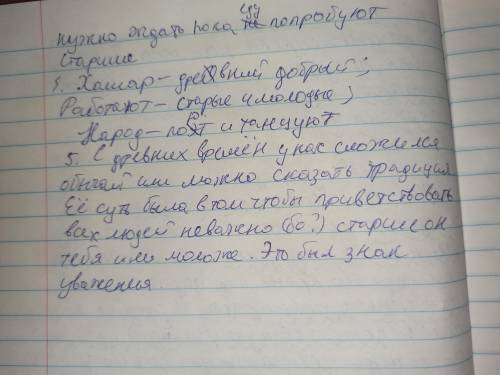 нужно ждать пока еду попробуют
старшие
5. Хашар – древний добрый;
Работают – старые и молодые;
Народ – поют и танцуют
5. С древних времён у нас сложился
обычай или можно сказать традиция.
Её суть была в том чтобы приветствовать
всех людей неважно старше он
тебя или моложе. Это был знак
уважения